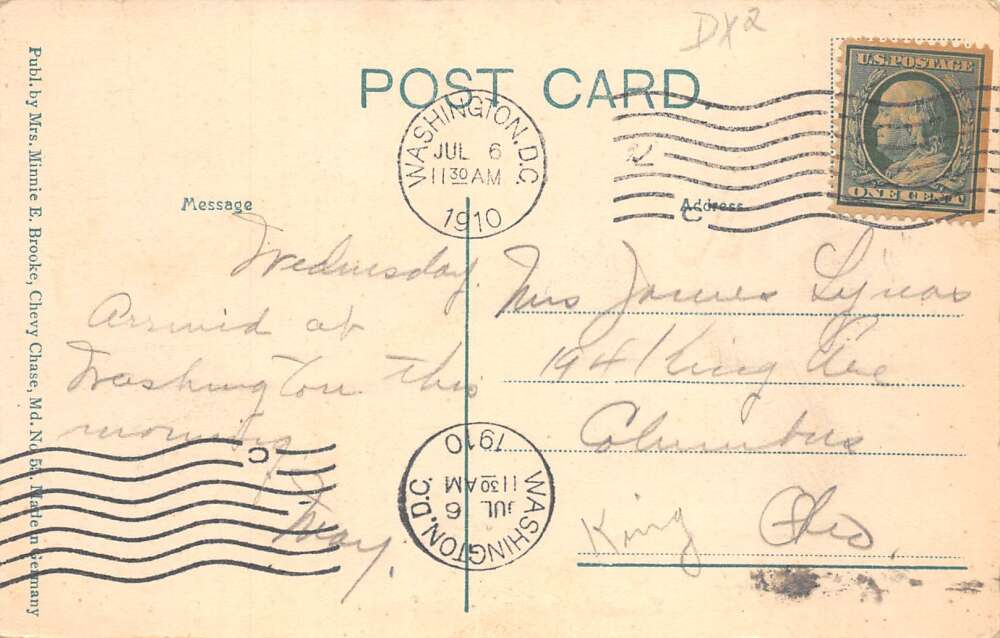 DX2
POST CARD
U.S. POSTAGE
ONE CENT
WASHINGTON, D.C.
JUL 6
11 30 AM
1910
C
Message
Address
Wednesday.
Arrived at
Washington this
morning
May.
Mrs James Lynas
1941 King Ave
Columbus
Ohio.
King
C
WASHINGTON, D.C.
JUL 6
11 30 AM
1910
Publ. by Mrs. Minnie E. Brooke, Chevy Chase, Md. No 55. Made in Germany